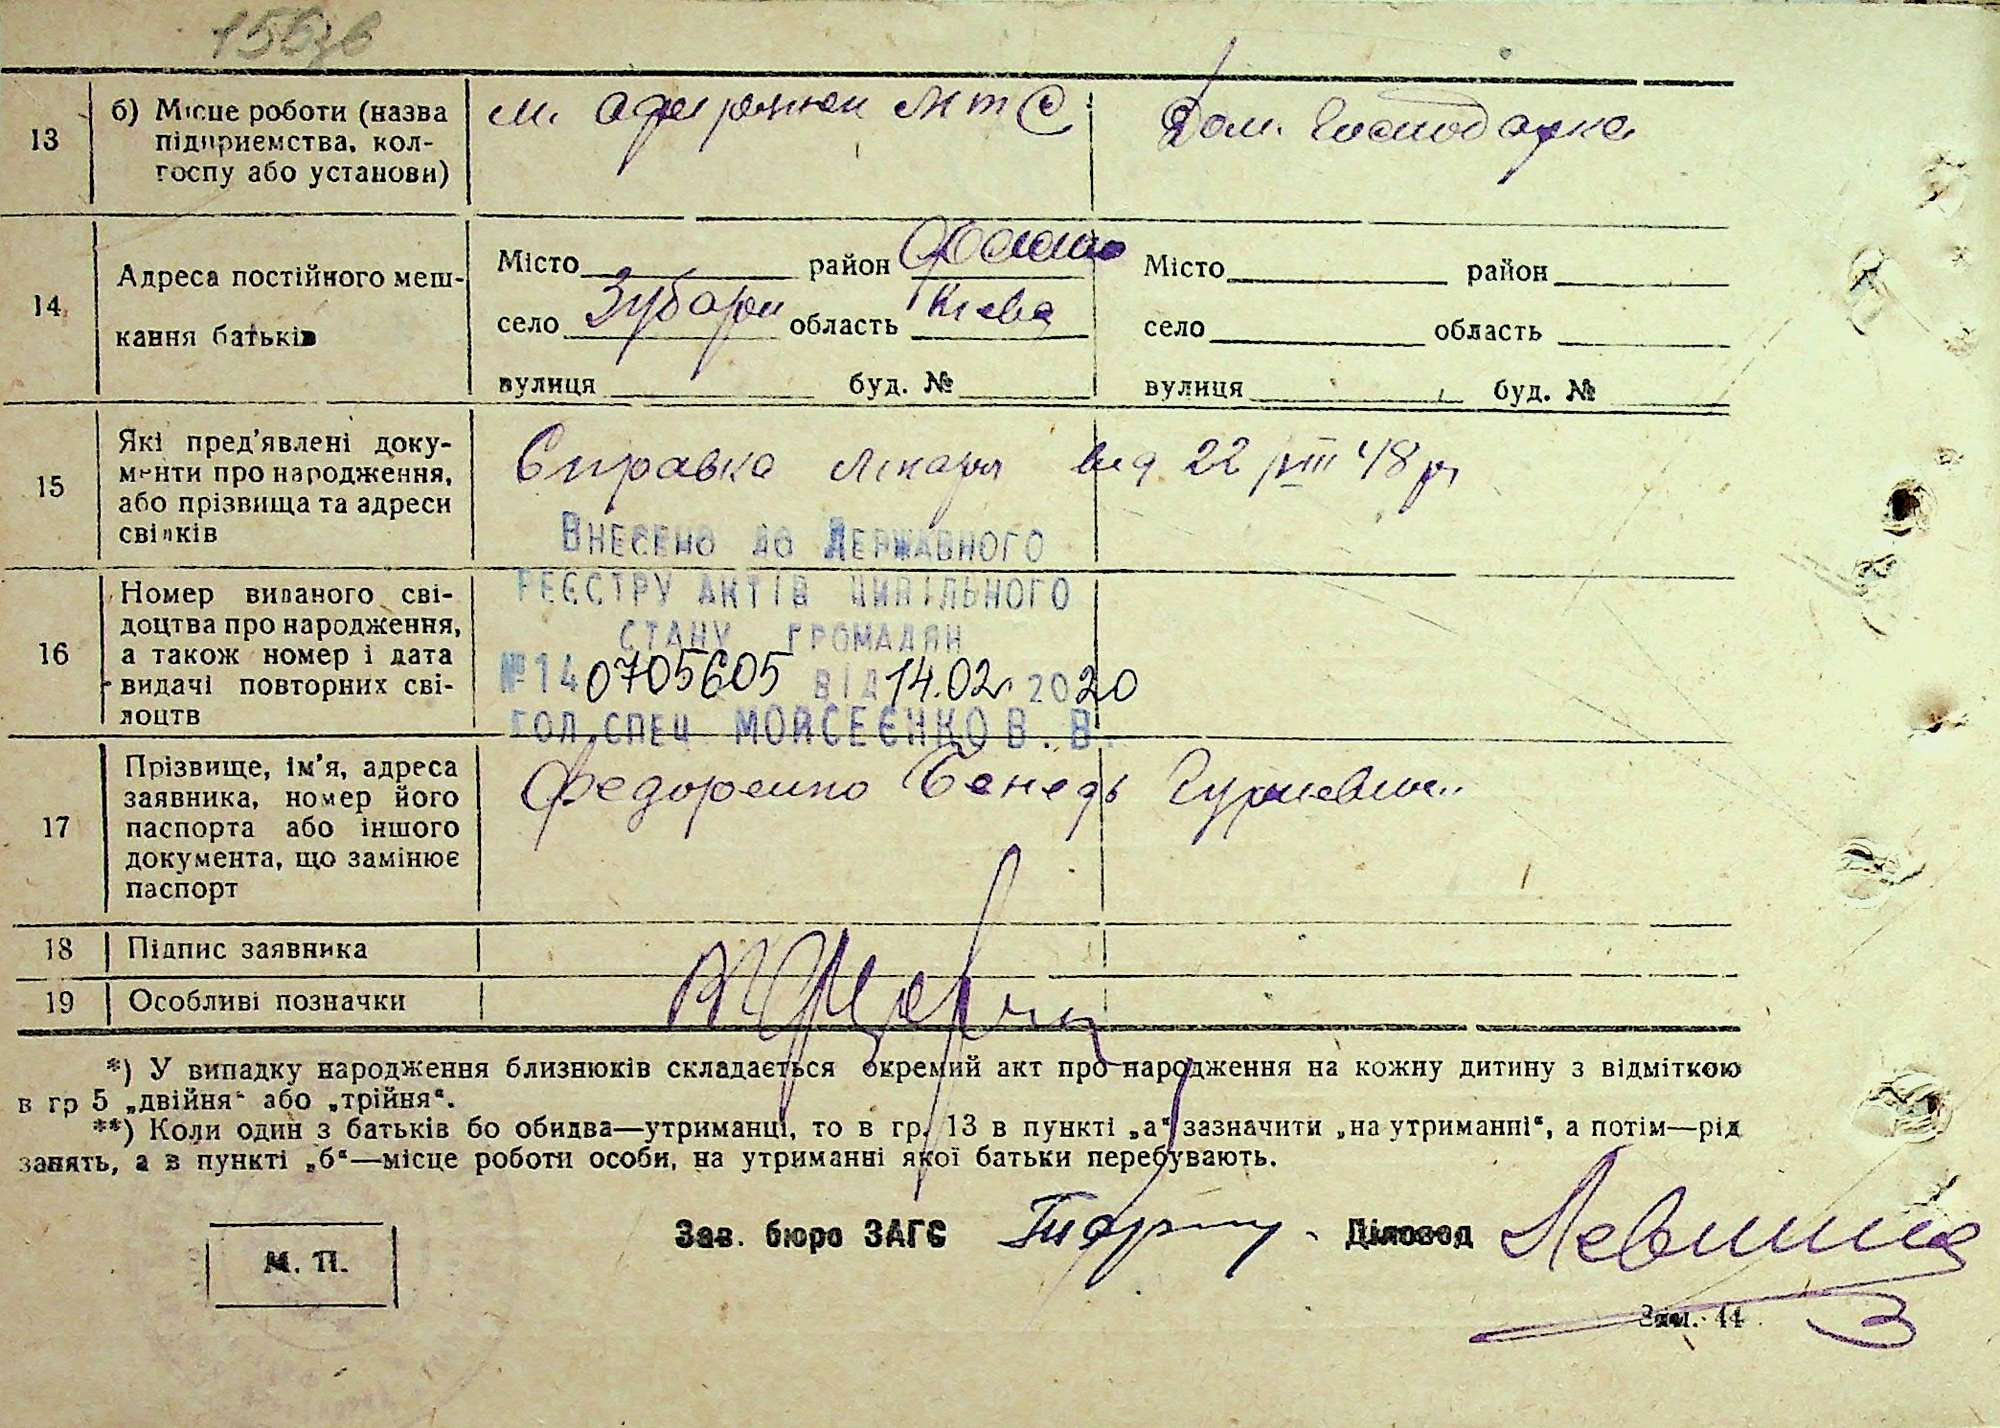 13
б) Місце роботи (назва
підприємства, кол-
госпу або установи)
МТС
Дом. Господарка
14
Адреса постійного меш-
кання батьків
Місто район
село Зубари область Києва
вулиця буд. №
Місто район
село область
вулиця буд. №
15
Які пред'явлені доку-
менти про народження,
або прізвища та адреси
свідків
Справка лікаря від 22/VIII 48 р
ВНЕСЕНО ДО ДЕРЖАВНОГО
РЕЄСТРУ АКТІВ ЦИВІЛЬНОГО
СТАНУ ГРОМАДЯН
№ 140705605 ВІД 14.02. 2020
ГОЛ. СПЕЦ МОЙСЕЄНКО В. В.
16
Номер виданого сві-
доцтва про народження,
а також номер і дата
видачі повторних сві-
доцтв
17
Прізвище, ім'я, адреса
заявника, номер його
паспорта або іншого
документа, що замінює
паспорт
Федоренко
18
Підпис заявника
19
Особливі позначки
*) У випадку народження близнюків складається окремий акт про народження на кожну дитину з відміткою
в гр 5 „двійня“ або „трійня“.
**) Коли один з батьків бо обидва—утриманці, то в гр. 13 в пункті „а“ зазначити „на утриманні“, а потім—рід
занять, а в пункті „б“—місце роботи особи, на утриманні якої батьки перебувають.
М. П.
Зав. бюро ЗАГС
Діловод
Зам. 44